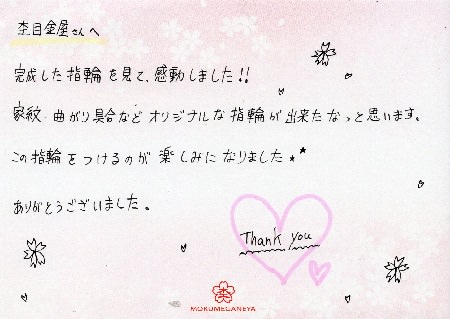 杢目金屋さんへ
完成した指輪を見て、感動しました!!
家紋・曲がり具合などオリジナルな指輪が出来たなっと思います。
この指輪をつけるのが楽しみになりました★★
ありがとうございました。
Thank you
MOKUMEGANEYA